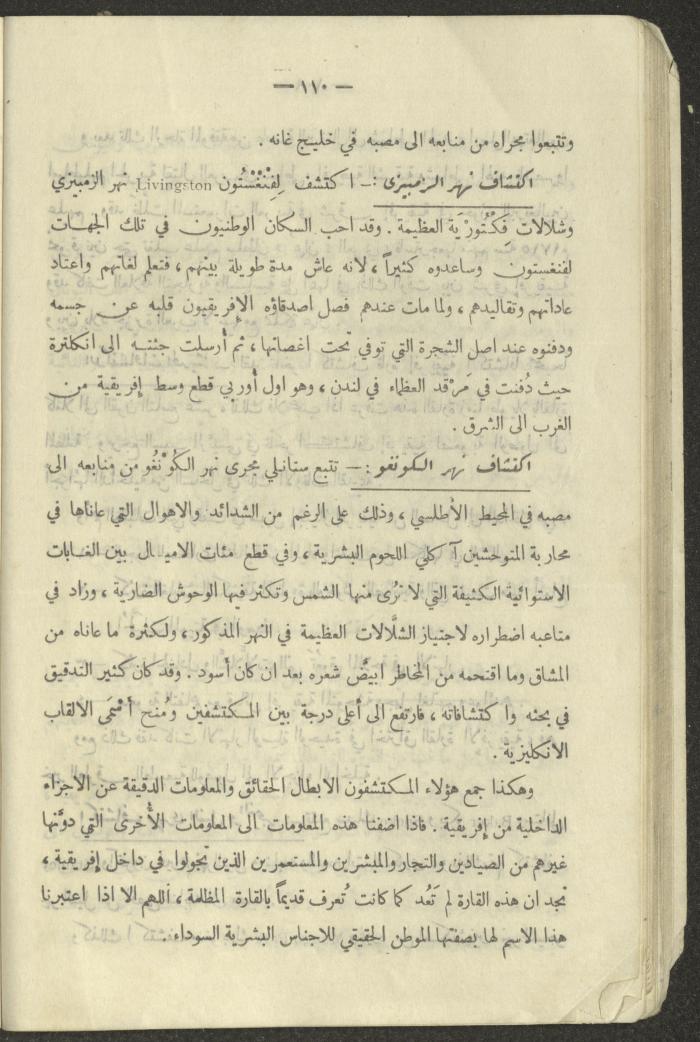 — ١١٠ —
وتتبعوا مجراه من منابعه الى مصبه في خليج غانه .
اكتشاف نهر الزمبيزي :— اكتشف لِفِنْغْسْتُون Livingston نهر الزمبيزي
وشلالات فِكْتُورْيَة العظيمة . وقد احب السكان الوطنيون في تلك الجهات
لفنغستون وساعدوه كثيراً ، لانه عاش مدة طويلة بينهم ، فتعلم لغاتهم واعتاد
عاداتهم وتقاليدهم ، ولما مات عندهم فصل اصدقاؤه الإفريقيون قلبه عن جسمه
ودفنوه عند اصل الشجرة التي توفي تحت اغصانها ، ثم أرسلت جثته الى انكلترة
حيث دُفنت في مَرْقد العظماء في لندن ، وهو اول أوربي قطع وسط إفريقية من
الغرب الى الشرق .
اكتشاف نهر الكونغو :— تتبع ستانلي مجرى نهر الكُونْغُو من منابعه الى
مصبه في المحيط الأطلسي ، وذلك على الرغم من الشدائد والاهوال التي عاناها في
محاربة المتوحشين آكلي اللحوم البشرية ، وفي قطع مئات الاميال بين الغابات
الاستوائية الكثيفة التي لا تُرى منها الشمس وتكثر فيها الوحوش الضارية ، وزاد في
متاعبه اضطراره لاجتياز الشلَّالات العظيمة في النهر المذكور ، ولكثرة ما عاناه من
المشاق وما اقتحمه من المخاطر ابيضَّ شعره بعد ان كان أسود . وقد كان كثير التدقيق
في بحثه واكتشافاته ، فارتفع الى أعلى درجة بين المكتشفين ومُنح أَسْمَى الالقاب
الانكليزية .
وهكذا جمع هؤلاء المكتشفون الابطال الحقائق والمعلومات الدقيقة عن الاجزاء
الداخلية من إفريقية . فاذا اضفنا هذه المعلومات الى المعلومات الأخرى التي دوَّنها
غيرهم من الصيادين والتجار والمبشرين والمستعمرين الذين تجولوا في داخل إفريقية ،
نجد ان هذه القارة لم تَعُد كما كانت تُعرف قديماً بالقارة المظلمة ، اللهم الا اذا اعتبرنا
هذا الاسم لها بصفتها الموطن الحقيقي للاجناس البشرية السوداء .